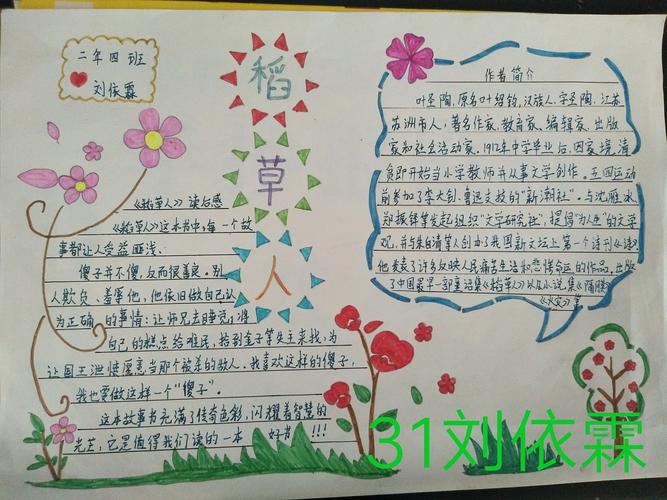 二年四班
刘依霖
稻
草
人
《稻草人》读后感
《稻草人》这本书中,每一个故
事都让人受益匪浅。
傻子并不傻,反而很善良。别
人欺负、羞辱他,他依旧做自己认
为正确的事情:让师兄去睡觉,准
自己的糕点给难民,拾到金子等失主来找,为
让国王泄愤愿意当那个被羞的敌人。我喜欢这样的傻子,
我也要做这样一个“傻子”。
这本故事书充满了传奇色彩,闪耀着智慧的
光芒,它是值得我们读的一本 好书!!!
作者简介
叶圣陶,原名叶绍钧,汉族人,字圣陶,江苏
苏洲市人,著名作家、教育家、编辑家、出版
家和社会活动家。1912年中学毕业后,因家境清
贫即开始当小学教师并从事文学创作。五四运动
前参加了李大钊、鲁迅支技的“新潮社”。与沈雁冰、
郑振铎等发起组织“文学研究社”,提倡“为人生”的文学
观,并与朱自清等人创办了我国新文坛上第一个诗刊《诗》
他发表了许多反映人民痛苦生活和悲惨命运的作品。出版
了中国最早一部童话集《稻草人》以及小说集《隔膜》
《火灾》等
31刘依霖